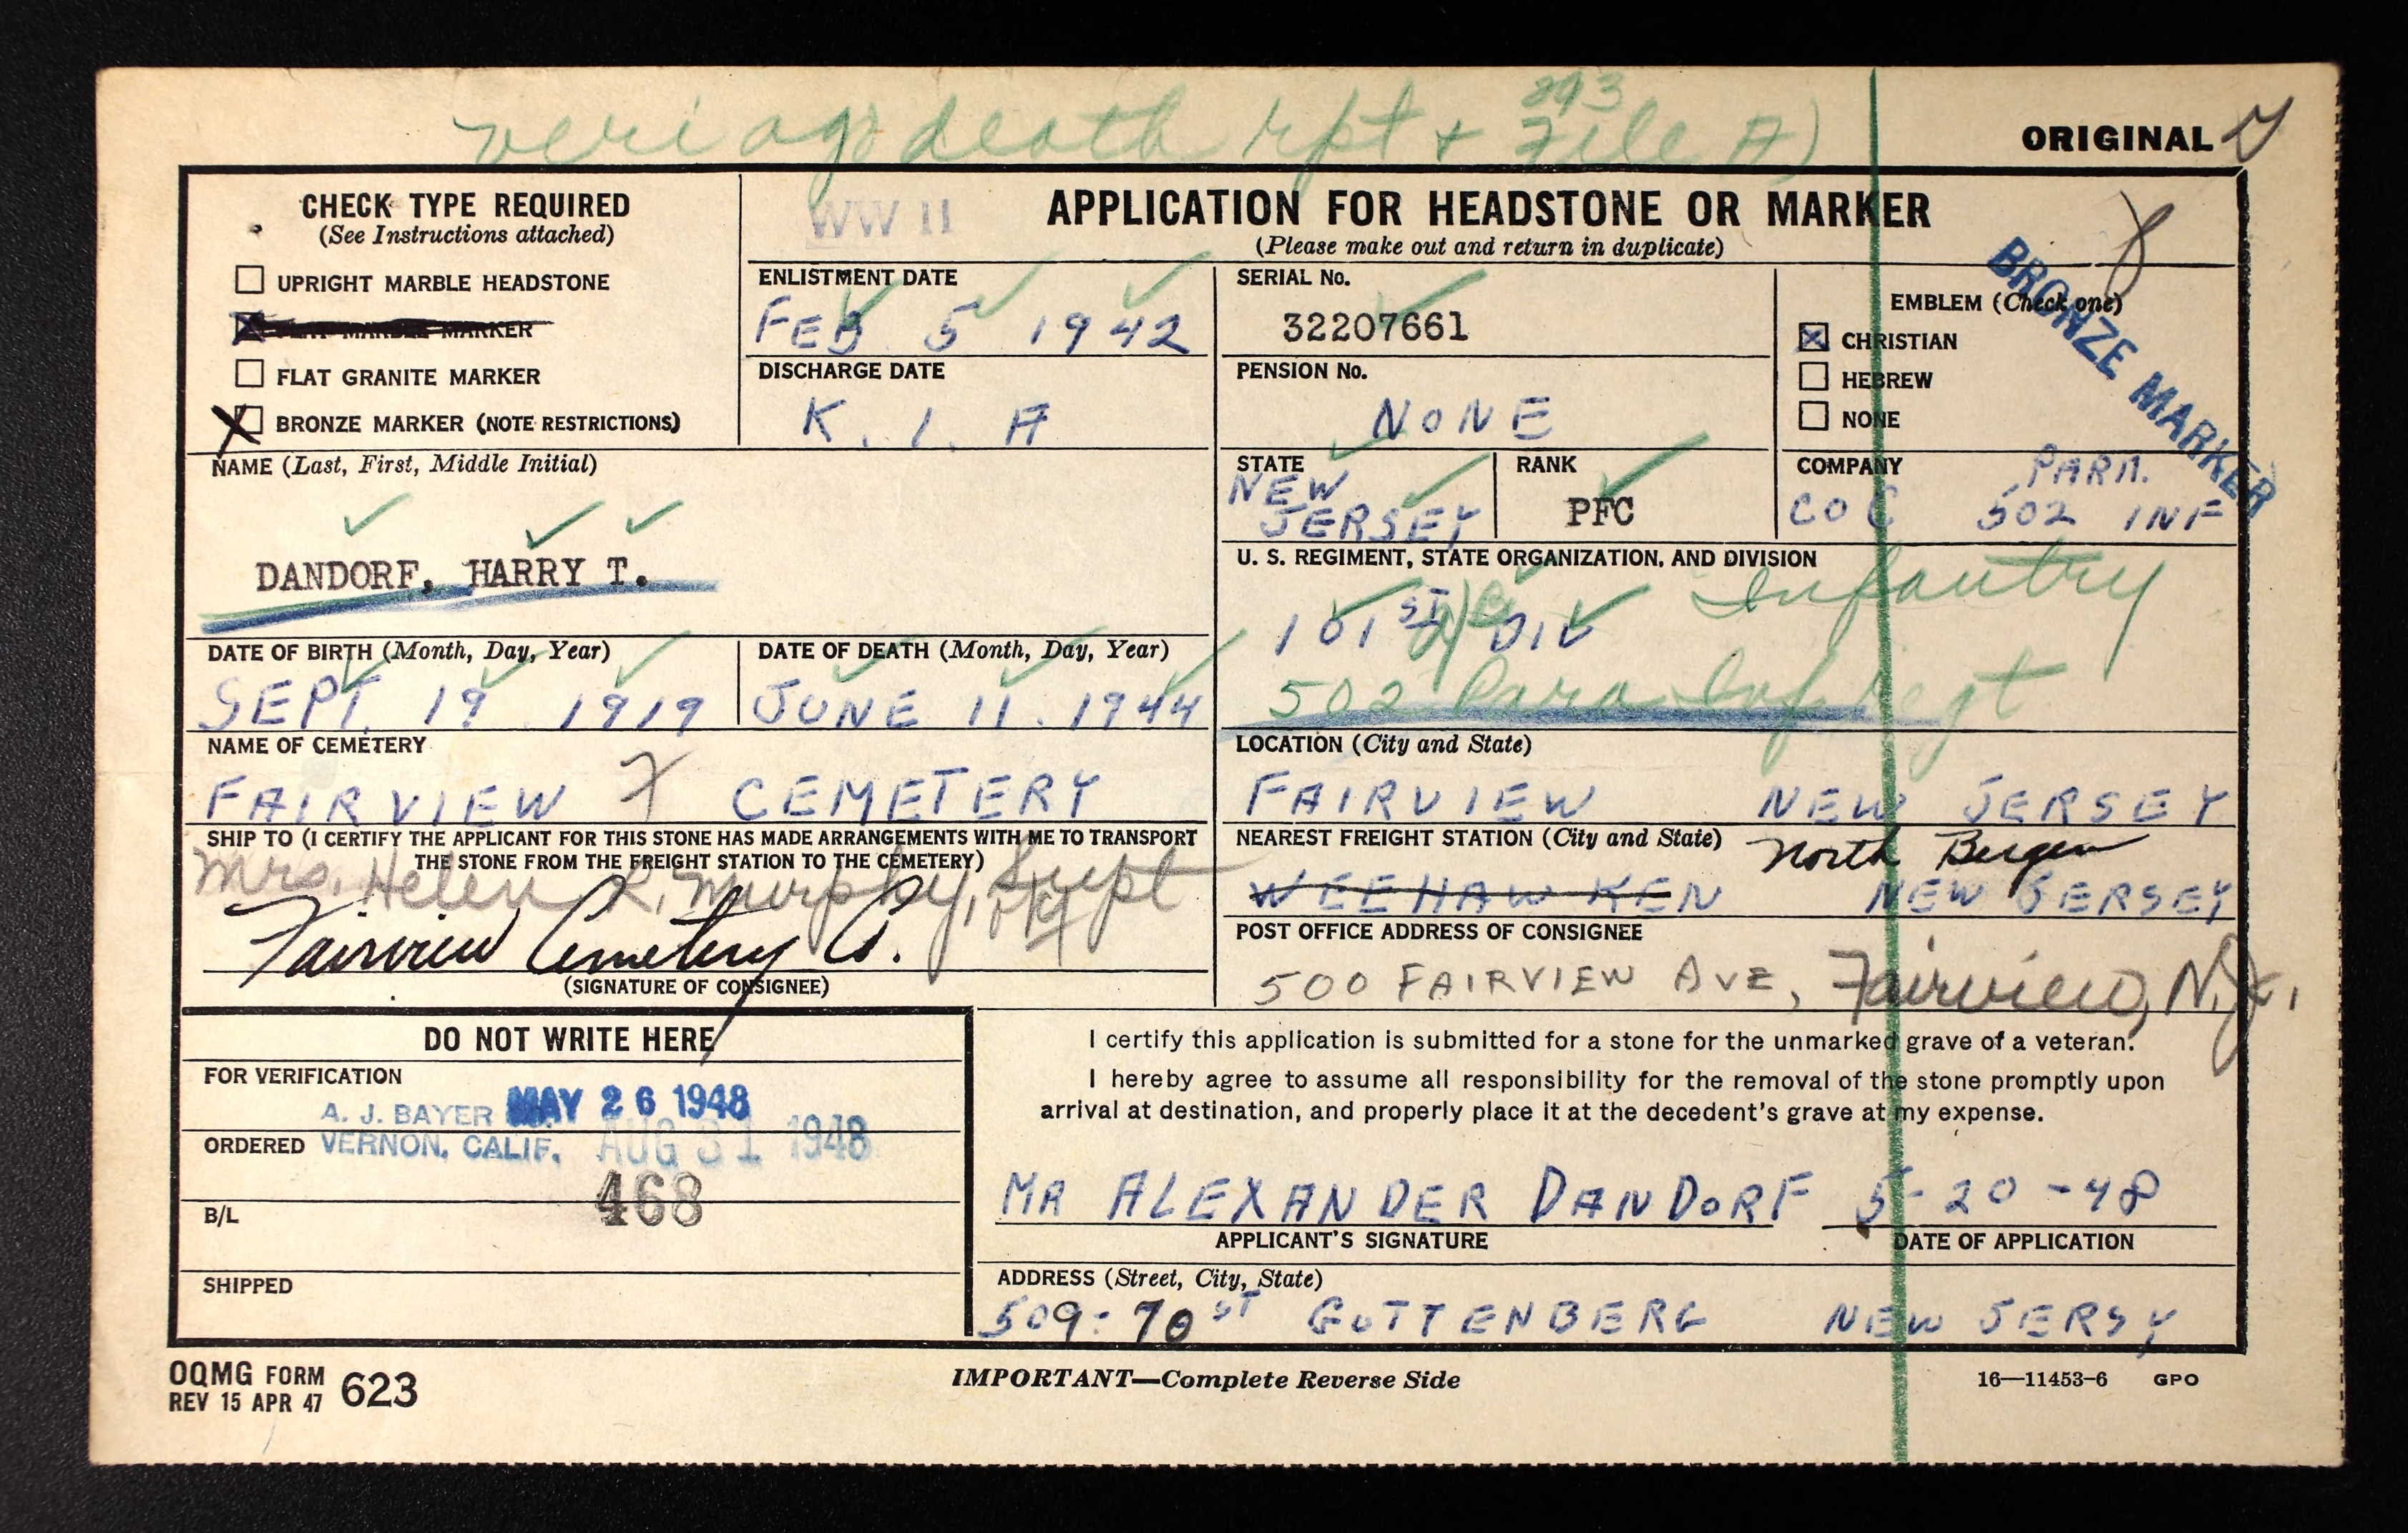 veri ago death rpt + 293 File A)
ORIGINAL
CHECK TYPE REQUIRED
(See Instructions attached)
UPRIGHT MARBLE HEADSTONE
FLAT MARBLE MARKER
FLAT GRANITE MARKER
X BRONZE MARKER (NOTE RESTRICTIONS)
WW II
APPLICATION FOR HEADSTONE OR MARKER
(Please make out and return in duplicate)
ENLISTMENT DATE
FEB 5 1942
DISCHARGE DATE
K. I. A
SERIAL No.
32207661
PENSION No.
NONE
EMBLEM (Check one)
CHRISTIAN
HEBREW
NONE
BRONZE MARKER
NAME (Last, First, Middle Initial)
DANDORF, HARRY T.
STATE
NEW
JERSEY
RANK
PFC
COMPANY
PARA.
CO C 502 INF
U. S. REGIMENT, STATE ORGANIZATION, AND DIVISION
101ST A/B DIV Infantry
502 Para Inf Regt
DATE OF BIRTH (Month, Day, Year)
SEPT. 19 1919
DATE OF DEATH (Month, Day, Year)
JUNE 11. 1944
NAME OF CEMETERY
FAIRVIEW CEMETERY
LOCATION (City and State)
FAIRVIEW NEW JERSEY
SHIP TO (I CERTIFY THE APPLICANT FOR THIS STONE HAS MADE ARRANGEMENTS WITH ME TO TRANSPORT
THE STONE FROM THE FREIGHT STATION TO THE CEMETERY)
Mrs. Helen R. Murphy, Supt
Fairview Cemetery Co.
(SIGNATURE OF CONSIGNEE)
NEAREST FREIGHT STATION (City and State)
North Bergen
WEEHAWKEN NEW JERSEY
POST OFFICE ADDRESS OF CONSIGNEE
500 FAIRVIEW AVE, Fairview, N.J.
DO NOT WRITE HERE
FOR VERIFICATION
A. J. BAYER MAY 26 1948
ORDERED VERNON, CALIF. AUG 31 1948
468
B/L
SHIPPED
I certify this application is submitted for a stone for the unmarked grave of a veteran.
I hereby agree to assume all responsibility for the removal of the stone promptly upon
arrival at destination, and properly place it at the decedent's grave at my expense.
MR ALEXANDER DANDORF 5-20-48
APPLICANT'S SIGNATURE
DATE OF APPLICATION
ADDRESS (Street, City, State)
509-70 ST GUTTENBERG NEW JERSY
OQMG FORM 623
REV 15 APR 47
IMPORTANT—Complete Reverse Side
16—11453-6 GPO